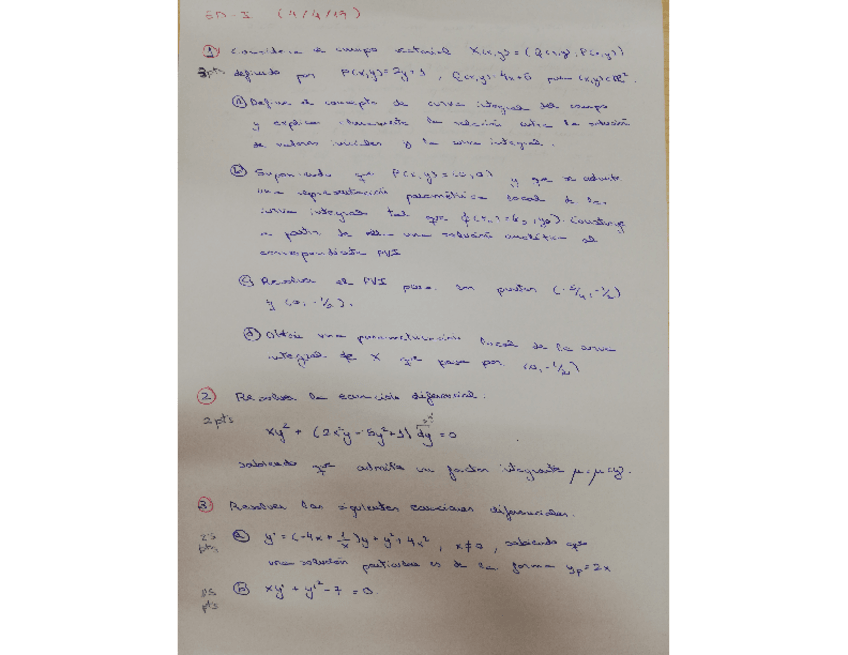 ED-I (4/4/19)
1 Considera el campo vectorial X(x,y) = (Q(x,y), P(x,y))
3pts definido por P(x,y)=2y+1, Q(x,y)=4x+5 para (x,y)∈ℝ².
a) Define el concepto de curva integral del campo
y explica claramente la relación entre la solución
de valores iniciales y la curva integral.
b) Suponiendo que P(x,y) ≠ (0,0) y que se admite
una representación paramétrica local de la
curva integral tal que = (x₀, y₀). Construye
a partir de ella una solución analítica al
correspondiente PVI
c) Resolva el PVI para los puntos (-5/4, -1/2)
y (0, -1/2).
d) Obtén una parametrización local de la curva
integral de X que pasa por (0, -1/2)
2 Resolva la ecuación diferencial.
2pts
xy² + (2x²y - 5y² + 1) dy = 0
sabiendo que admite un factor integrante μ = μ(y).
3 Resolver las siguientes ecuaciones diferenciales.
pts a) y' = (-4x + 1/x)y + y² + 4x², x≠0, sabiendo que
una solución particular es de la forma yp = 2x
pts b) xy' + y'² - 7 = 0.